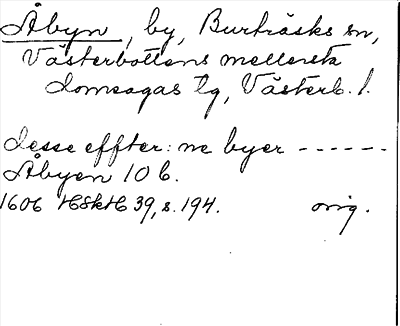 Åbyn, by, Burträsks sn,
Västerbottens mellersta
domsagas tg, Västerb. l.
desse effter: ne byer ------
Åbyen 10 b.
1606 HSkH 39, s. 194. orig.